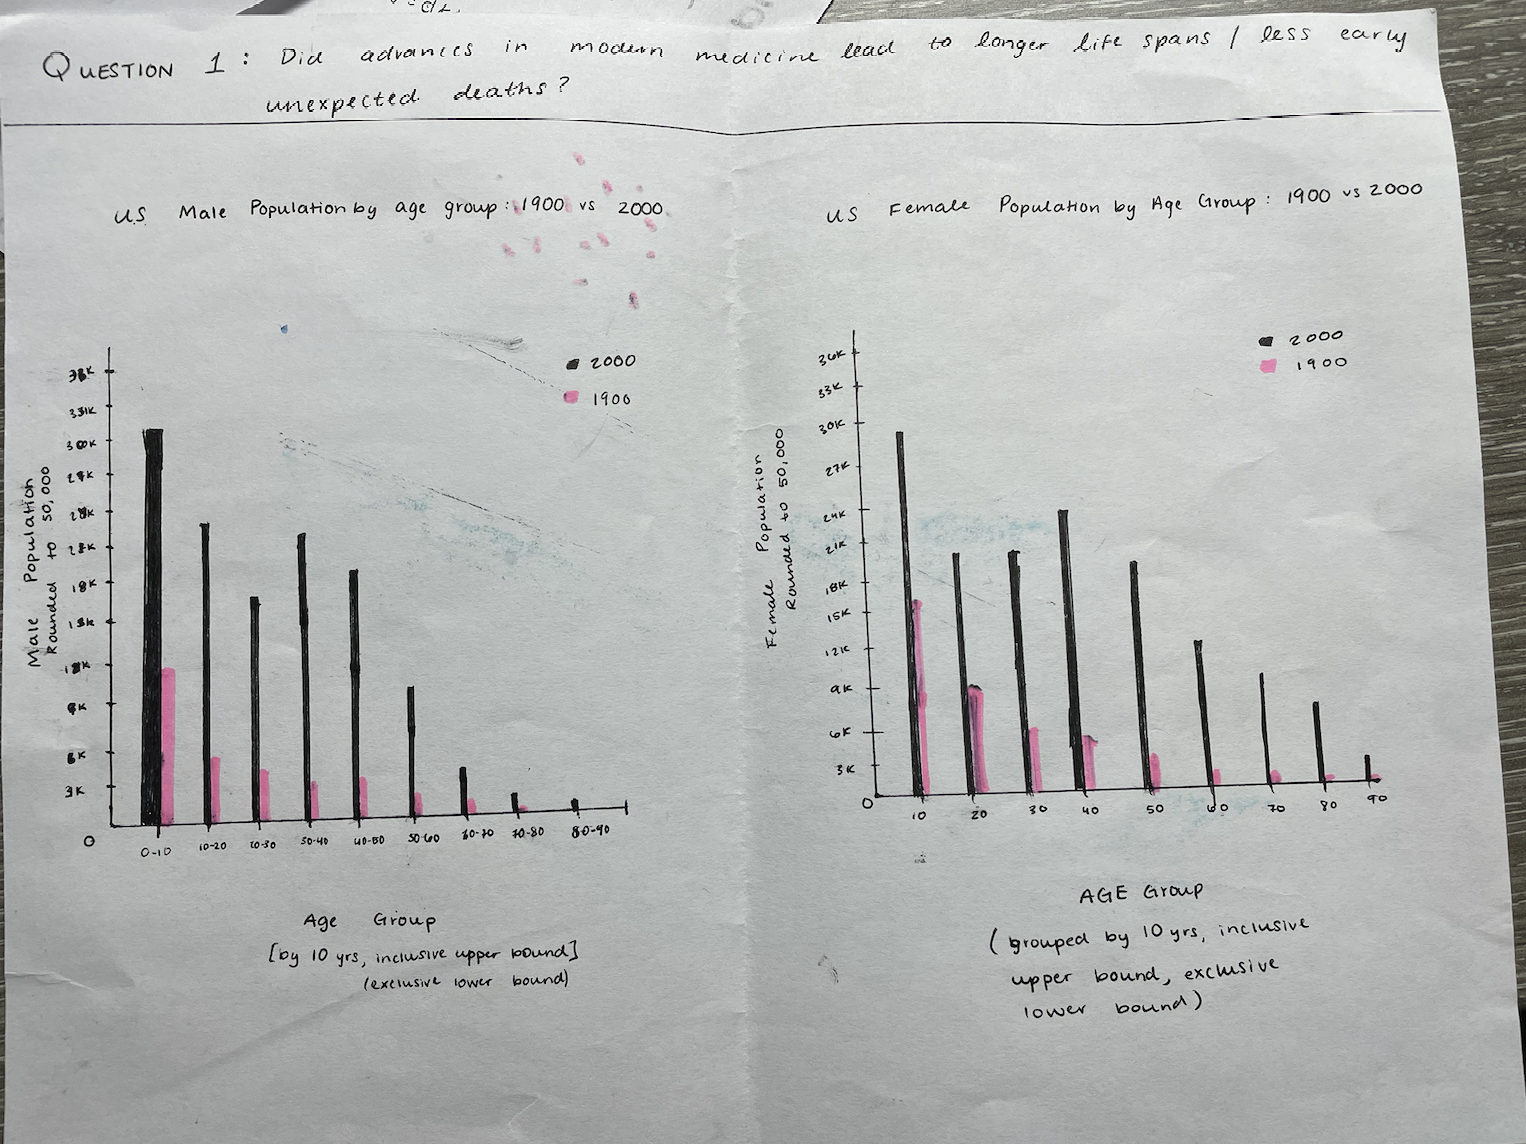 QUESTION 1: Did advances in modern medicine lead to longer life spans / less early
unexpected deaths?
US Male Population by age group: 1900 vs 2000
2000
1900
Male Population
Rounded to 50,000
30K
18K
15K
9K
6K
3K
0
0-10
10-20
20-30
30-40
40-50
50-60
60-70
70-80
80-90
Age Group
[by 10 yrs, inclusive upper bound]
(exclusive lower bound)
US Female Population by Age Group: 1900 vs 2000
2000
1900
Female Population
Rounded to 50,000
36K
33K
30K
27K
24K
21K
18K
15K
12K
9K
6K
3K
0
10
20
30
40
50
60
70
80
90
AGE Group
(grouped by 10 yrs, inclusive
upper bound, exclusive
lower bound)